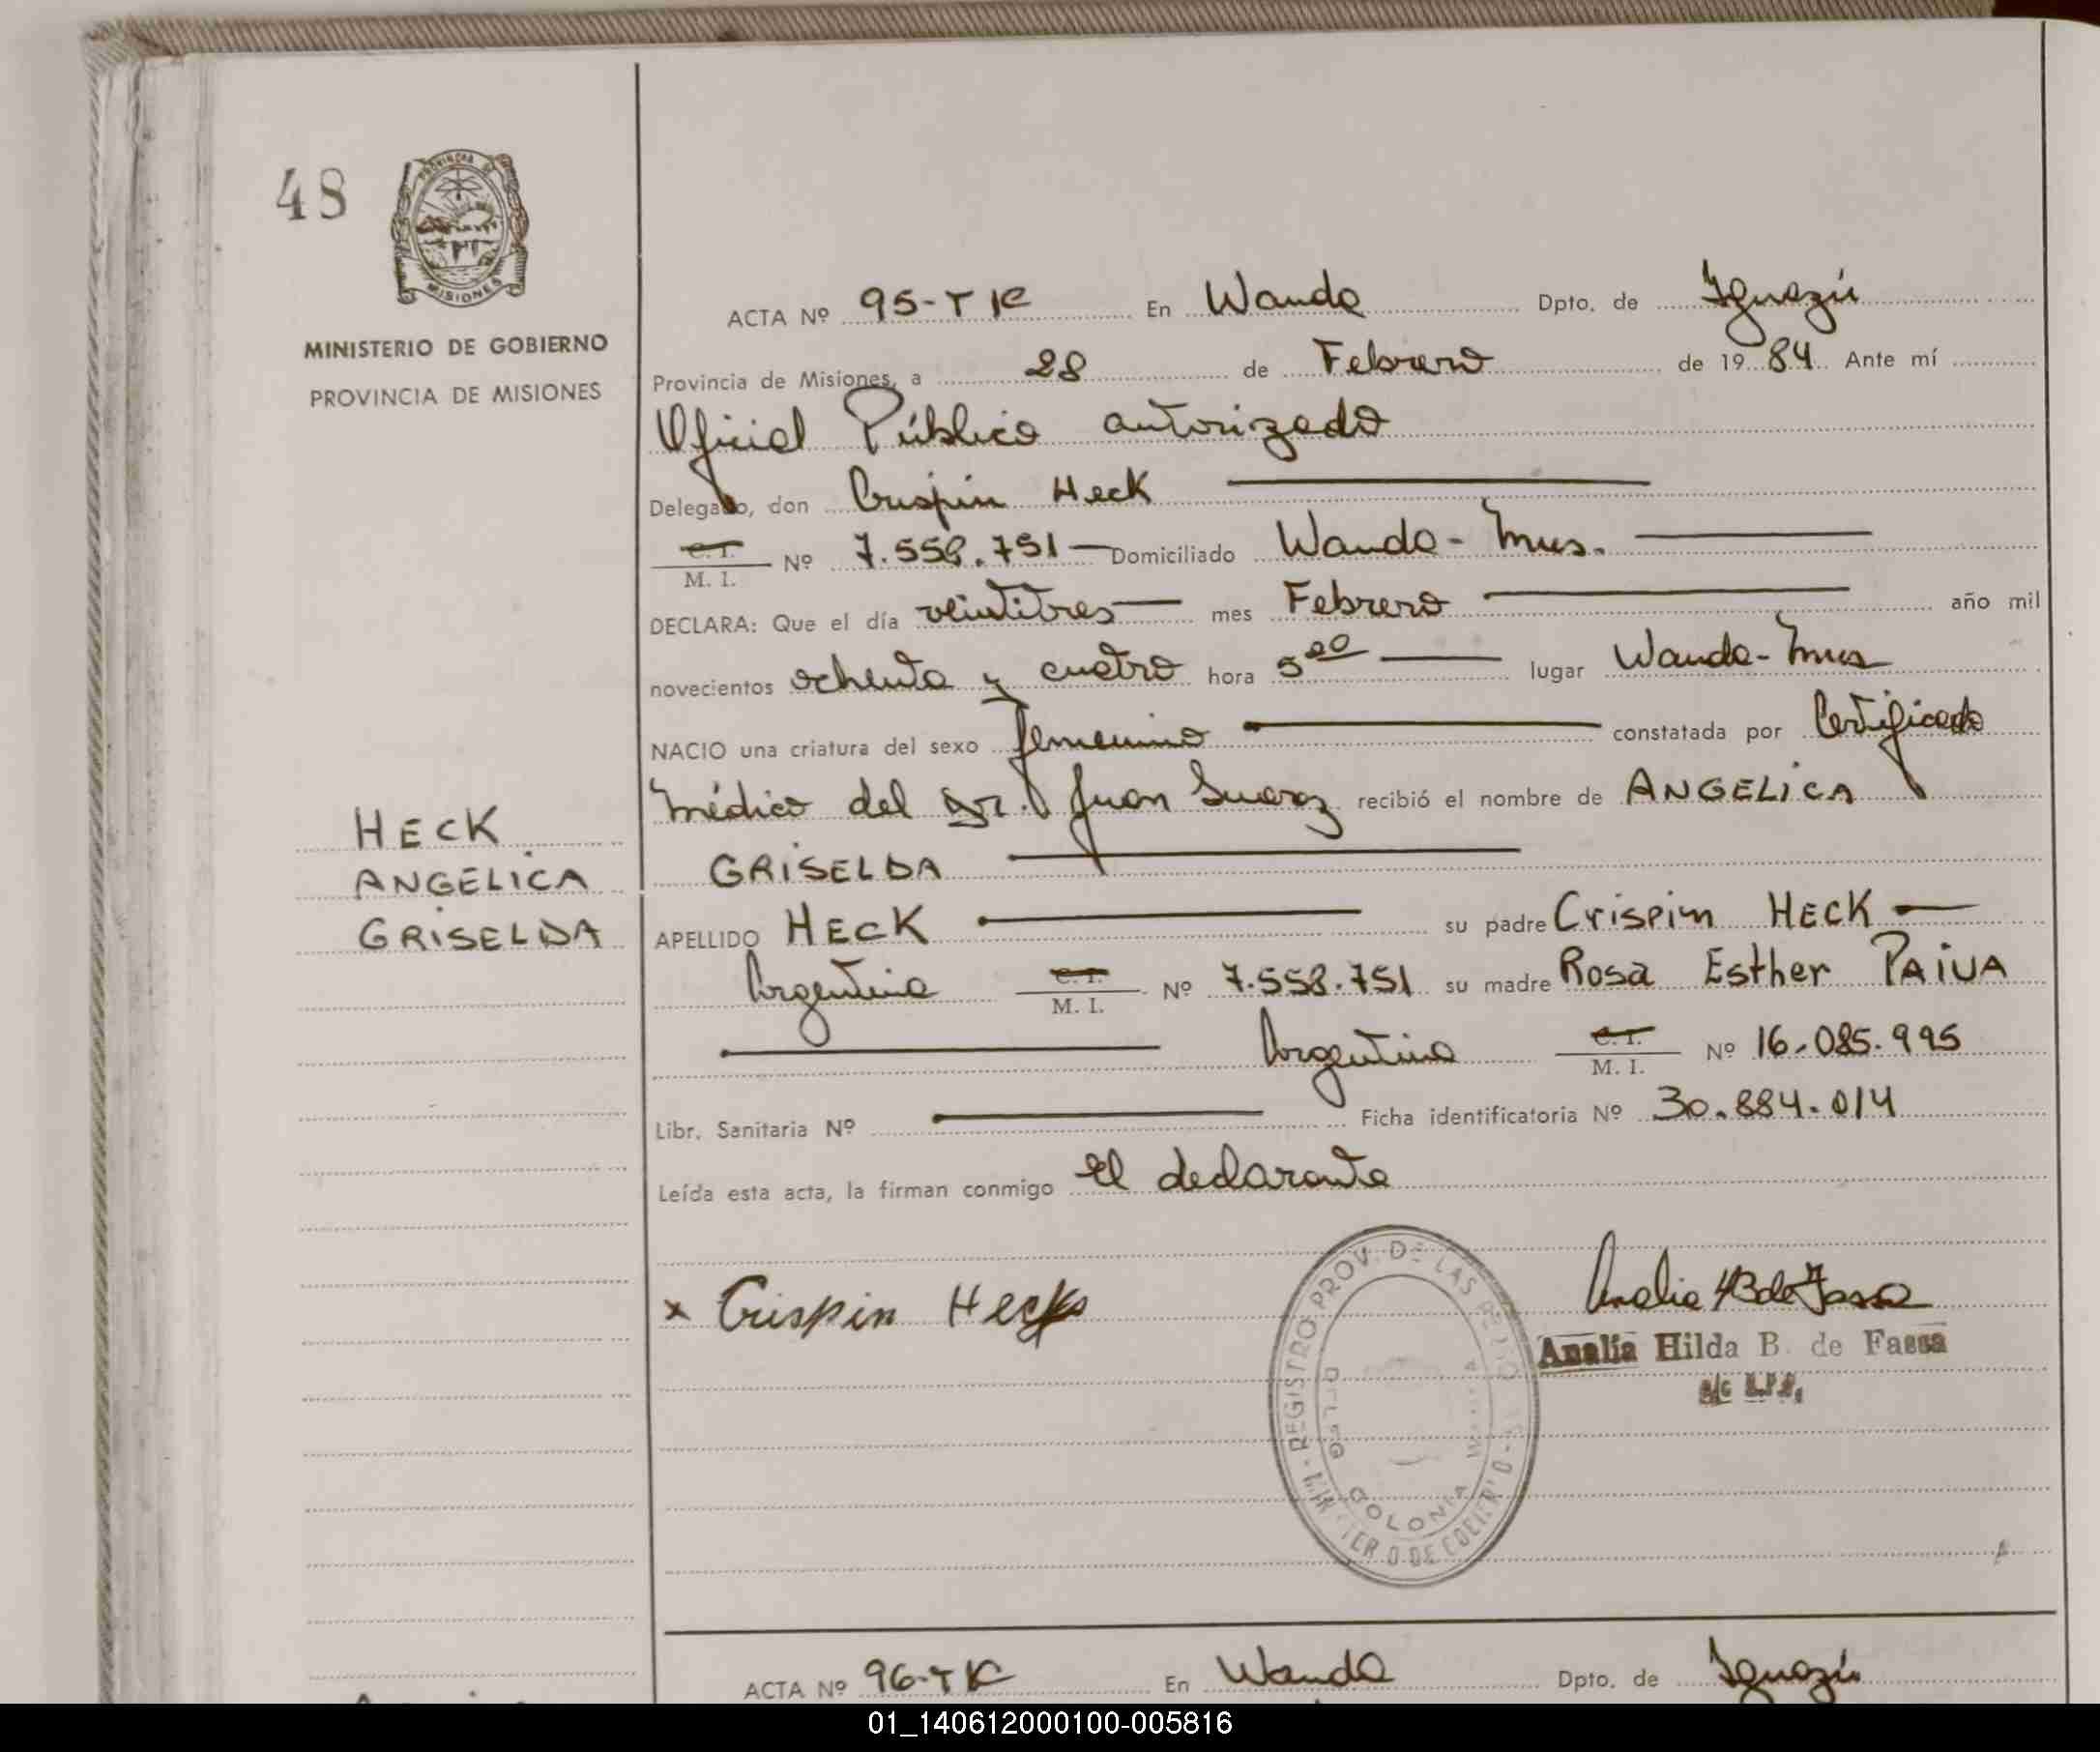 48
PROVINCIA DE
MISIONES
MINISTERIO DE GOBIERNO
PROVINCIA DE MISIONES
HECK
ANGELICA
GRISELDA
ACTA Nº 95-T IC En Wanda Dpto. de Iguazú
Provincia de Misiones, a 28 de Febrero de 1984 Ante mí
Oficial Público autorizado
Delegado, don Crispin Heck
C. I. / M. I. Nº 7.558.751 Domiciliado Wanda - Mnes.
DECLARA: Que el día veintitres mes Febrero año mil
novecientos ochenta y cuatro hora 5⁰⁰ lugar Wanda - Mnes
NACIO una criatura del sexo femenino constatada por Certificado
Médico del Dr. Juan Suarez recibió el nombre de ANGELICA
GRISELDA
APELLIDO HECK su padre Crispim HECK
Argentina C. I. / M. I. Nº 7.558.751 su madre Rosa Esther PAIVA
Argentina C. I. / M. I. Nº 16.085.995
Libr. Sanitaria Nº Ficha identificatoria Nº 30.884.014
Leída esta acta, la firman conmigo el declarante
x Crispin Heck
Analia H B de Fassa
Analía Hilda B. de Fassa
REGISTRO PROV. DE LAS
DELEG COLONIA
ACTA Nº 96-T IC En Wanda Dpto. de Iguazú
01_140612000100-005816